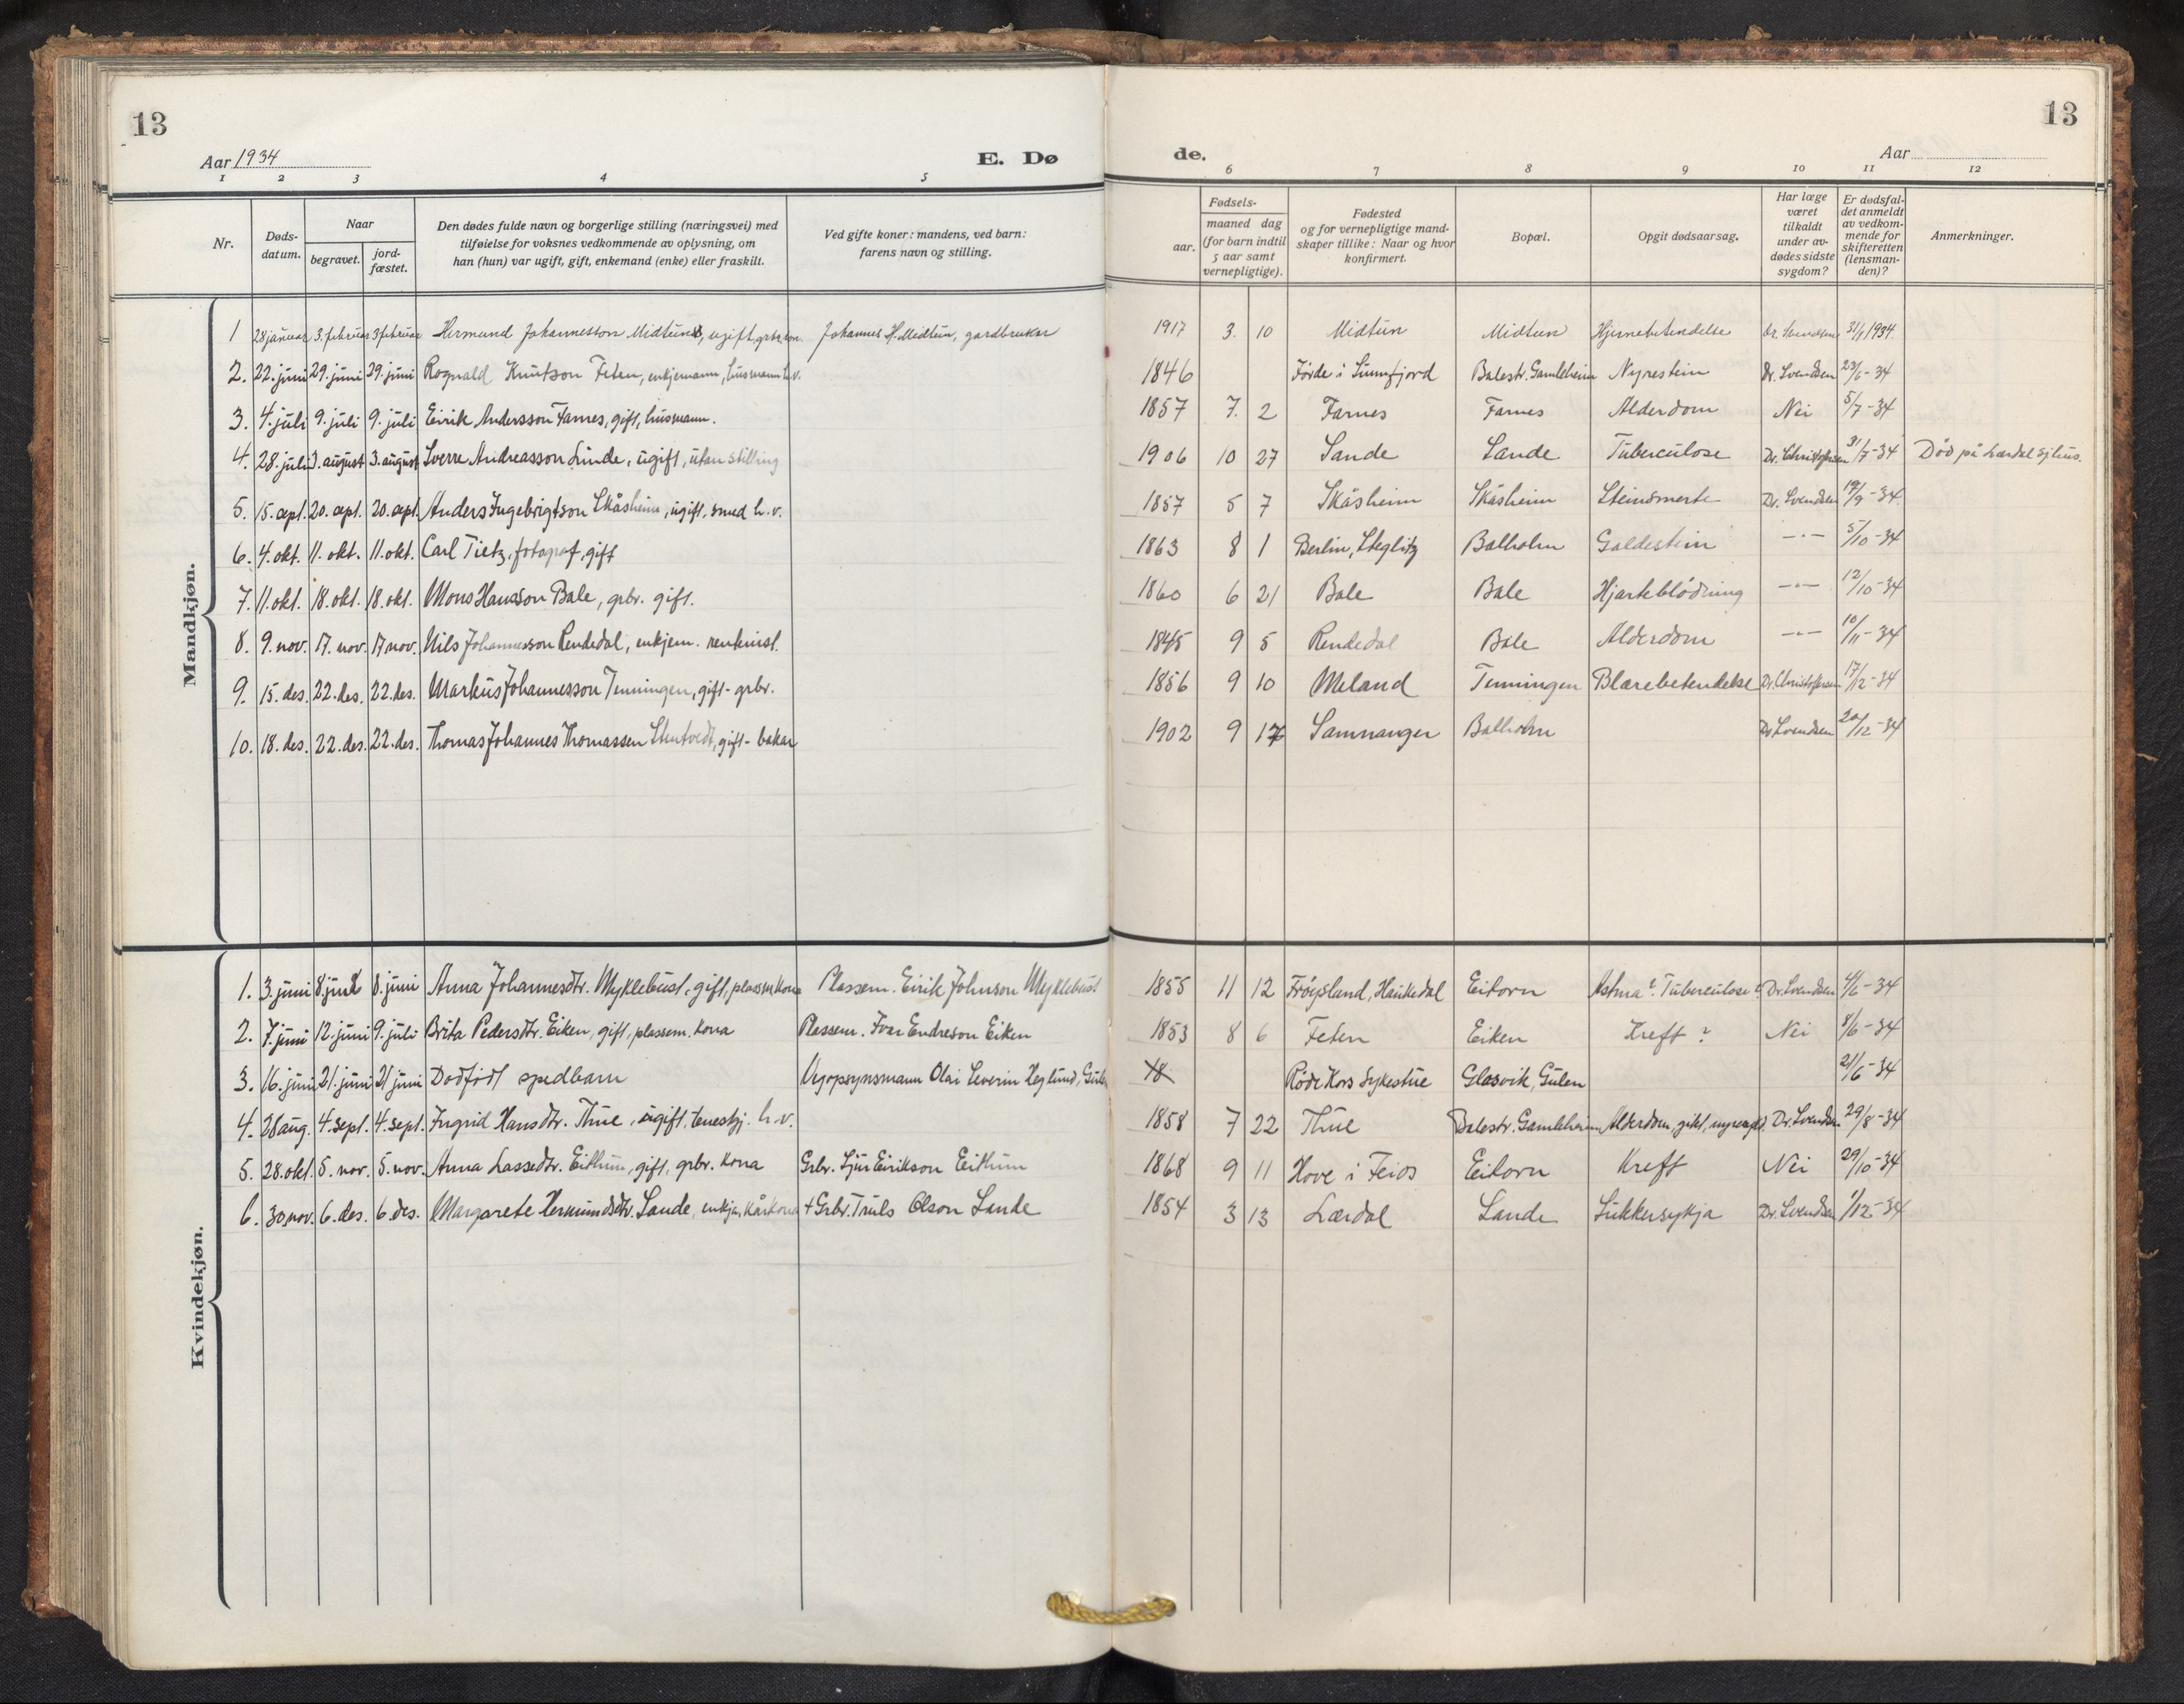 13
13
Aar 1934
E. Dø
de.
Aar
1 2 3 4 5 6 7 8 9 10 11 12
Nr.
Døds-
datum.
Naar
begravet.
jord-
fæstet.
Den dødes fulde navn og borgerlige stilling (næringsvei) med
tilføielse for voksnes vedkommende av oplysning, om
han (hun) var ugift, gift, enkemand (enke) eller fraskilt.
Ved gifte koner: mandens, ved barn:
farens navn og stilling.
Fødsels-
aar.
maaned dag
(for barn indtil
5 aar samt
vernepligtige).
Fødested
og for vernepligtige mand-
skaper tillike: Naar og hvor
konfirmert.
Bopæl.
Opgit dødsaarsag.
Har læge
været
tilkaldt
under av-
dødes sidste
sygdom?
Er dødsfal-
det anmeldt
av vedkom-
mende for
skifteretten
(lensman-
den)?
Anmerkninger.
Mandkjøn.
1 28 januar 3. februar 3 februar Hermund Johannesson Midtun, ugift, grbr. son. Johannes H. Midtun, gardbrukar 1917 3. 10 Midtun Midtun Hjernebetendelse Dr. Svendsen 31/1 1934.
2. 22. juni 29. juni 29. juni Rognald Knutson Feten, enkjemann, husmann h.v. 1846 Førde i Sunnfjord Balestr. Gamleheim Nyrestein Dr. Svendsen 23/6-34
3. 4. juli 9. juli 9. juli Eirik Andersson Farnes, gift, husmann. 1857 7. 2 Farnes Farnes Alderdom Nei 5/7-34
4. 28. juli 3. august 3. august Sverre Andreasson Linde, ugift, utan stilling 1906 10 27 Sande Sande Tuberculose Dr. Christofersen 31/7-34 Död på Lærdal Sjhus.
5. 15. sept. 20. sept. 20. sept. Anders Ingebrigtson Skåsheim, ugift, smed h.v. 1857 5 7 Skåsheim Skåsheim Steinsmerte Dr. Svendsen 19/9-34
6. 4. okt. 11. okt. 11. okt. Carl Tietz, fotograf, gift 1863 8 1 Berlin, Steglitz Balholm Galdestein —"— 5/10-34
7. 11. okt. 18. okt. 18. okt. Mons Hansson Bale, grbr. gift. 1860 6 21 Bale Bale Hjarteblödning —"— 12/10-34
8. 9. nov. 17. nov. 17 nov. Nils Johannesson Rendedal, enkjem. renteinst. 1845 9 5 Rendedal Bale Alderdom —"— 10/11-34
9. 15. des. 22. des. 22. des. Markus Johannesson Tenningen, gift - grbr. 1856 9 10 Meland Tenningen Blærebetendelse Dr. Christofersen 17/12-34
10. 18. des. 22. des. 22. des. Thomas Johannes Thomassen Stentvedt, gift - bakar 1902 9 17 Samnanger Balholm Dr Svendsen 20/12-34
Kvindekjøn.
1. 3. juni 8. juni 8. juni Anna Johannesdtr. Myklebust, gift, plassm. kona Plassem. Eirik Johnson Myklebust 1855 11 12 Frøysland, Haukedal Eitorn Astma? Tuberculose? Dr. Svendsen 4/6-34
2. 7. juni 12. juni 9. juli Brita Pedersdtr. Eiken, gift, plassem. kona Plassem. Ivar Endreson Eiken 1853 8 6 Feten Eiken Kreft? Nei 8/6-34
3. 16. juni 21. juni 21 juni Dødfødt spedbarn Vegopsynsmann Olai Severin Heglund, Gulen 18 Röde Kors Sykestue Glasvik, Gulen 21/6-34
4. 28 aug. 4. sept. 4. sept. Ingrid Hansdtr. Thue, ugift, tenestgj. h.v. 1858 7 22 Thue Balestr. Gamleheim Alderdom, gikt, Dr. Svendsen 29/8-34
5. 28. okt. 5. nov. 5. nov. Anna Lassedtr. Eithun, gift, grbr. kona Grbr. Sjur Eirikson Eithun 1868 9 11 Hove i Feios Eitorn Kreft Nei 29/10-34
6. 30 nov. 6. des. 6. des. Margarete Hermundsdtr. Sande, enkja, kårkona + Grbr. Truls Olson Sande 1854 3 13 Lærdal Sande Sukkersykja Dr. Svendsen 1/12-34